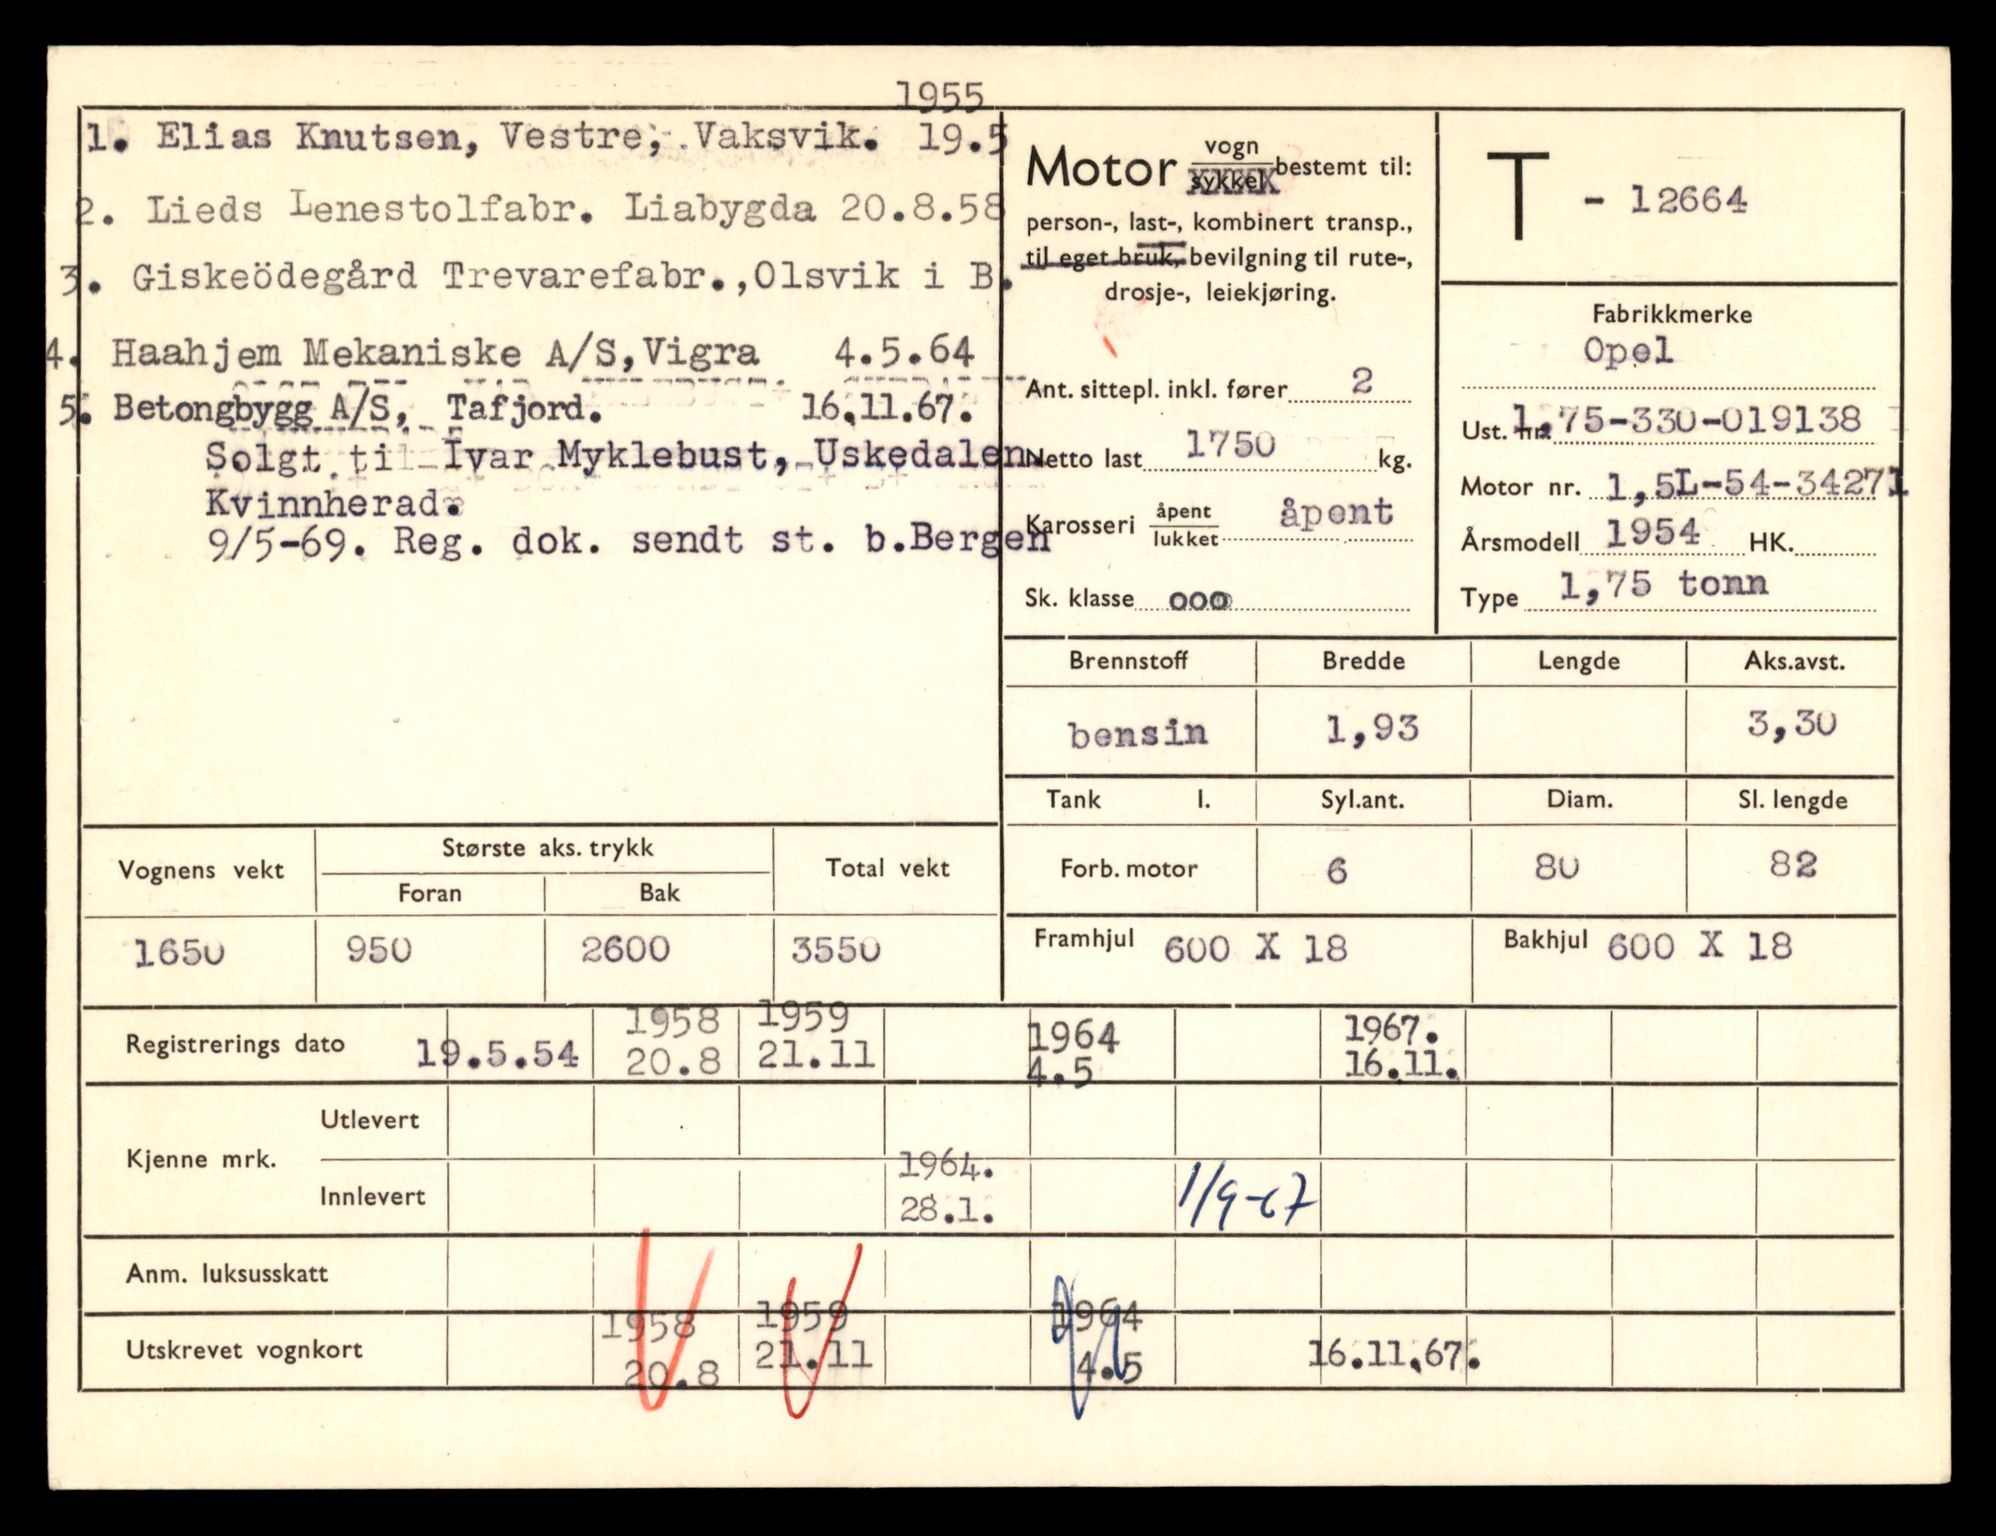 1955
1. Elias Knutsen, Vestre, Vaksvik. 19.5
2. Lieds Lenestolfabr. Liabygda 20.8.58
3. Giskeödegård Trevarefabr.,Olsvik i B.
4. Haahjem Mekaniske A/S,Vigra 4.5.64
5. Betongbygg A/S, Tafjord. 16.11.67.
Solgt til Ivar Myklebust, Uskedalen
Kvinnherad.
9/5-69. Reg. dok. sendt st. b.Bergen
Motor vogn sykkel bestemt til:
person-, last-, kombinert transp.,
til eget bruk, bevilgning til rute-,
drosje-, leiekjøring.
Ant. sittepl. inkl. fører 2
Netto last 1750 kg.
Karosseri åpent lukket åpent
Sk. klasse 000
T - 12664
Fabrikkmerke
Opel
Ust. nr. 1,75-330-019138
Motor nr. 1,5L-54-34271
Årsmodell 1954 HK.
Type 1,75 tonn
Brennstoff Bredde Lengde Aks.avst.
bensin 1,93 3,30
Tank l. Syl.ant. Diam. Sl. lengde
Forb. motor 6 80 82
Framhjul 600 X 18 Bakhjul 600 X 18
Vognens vekt Største aks. trykk Total vekt
Foran Bak
1650 950 2600 3550
1958 1959 1964 1967.
Registrerings dato 19.5.54 20.8 21.11 4.5 16.11.
Utlevert
Kjenne mrk.
1964.
Innlevert 28.1. 1/9-67
Anm. luksusskatt
1958 1959 1964
Utskrevet vognkort 20.8 21.11 4.5 16.11.67.